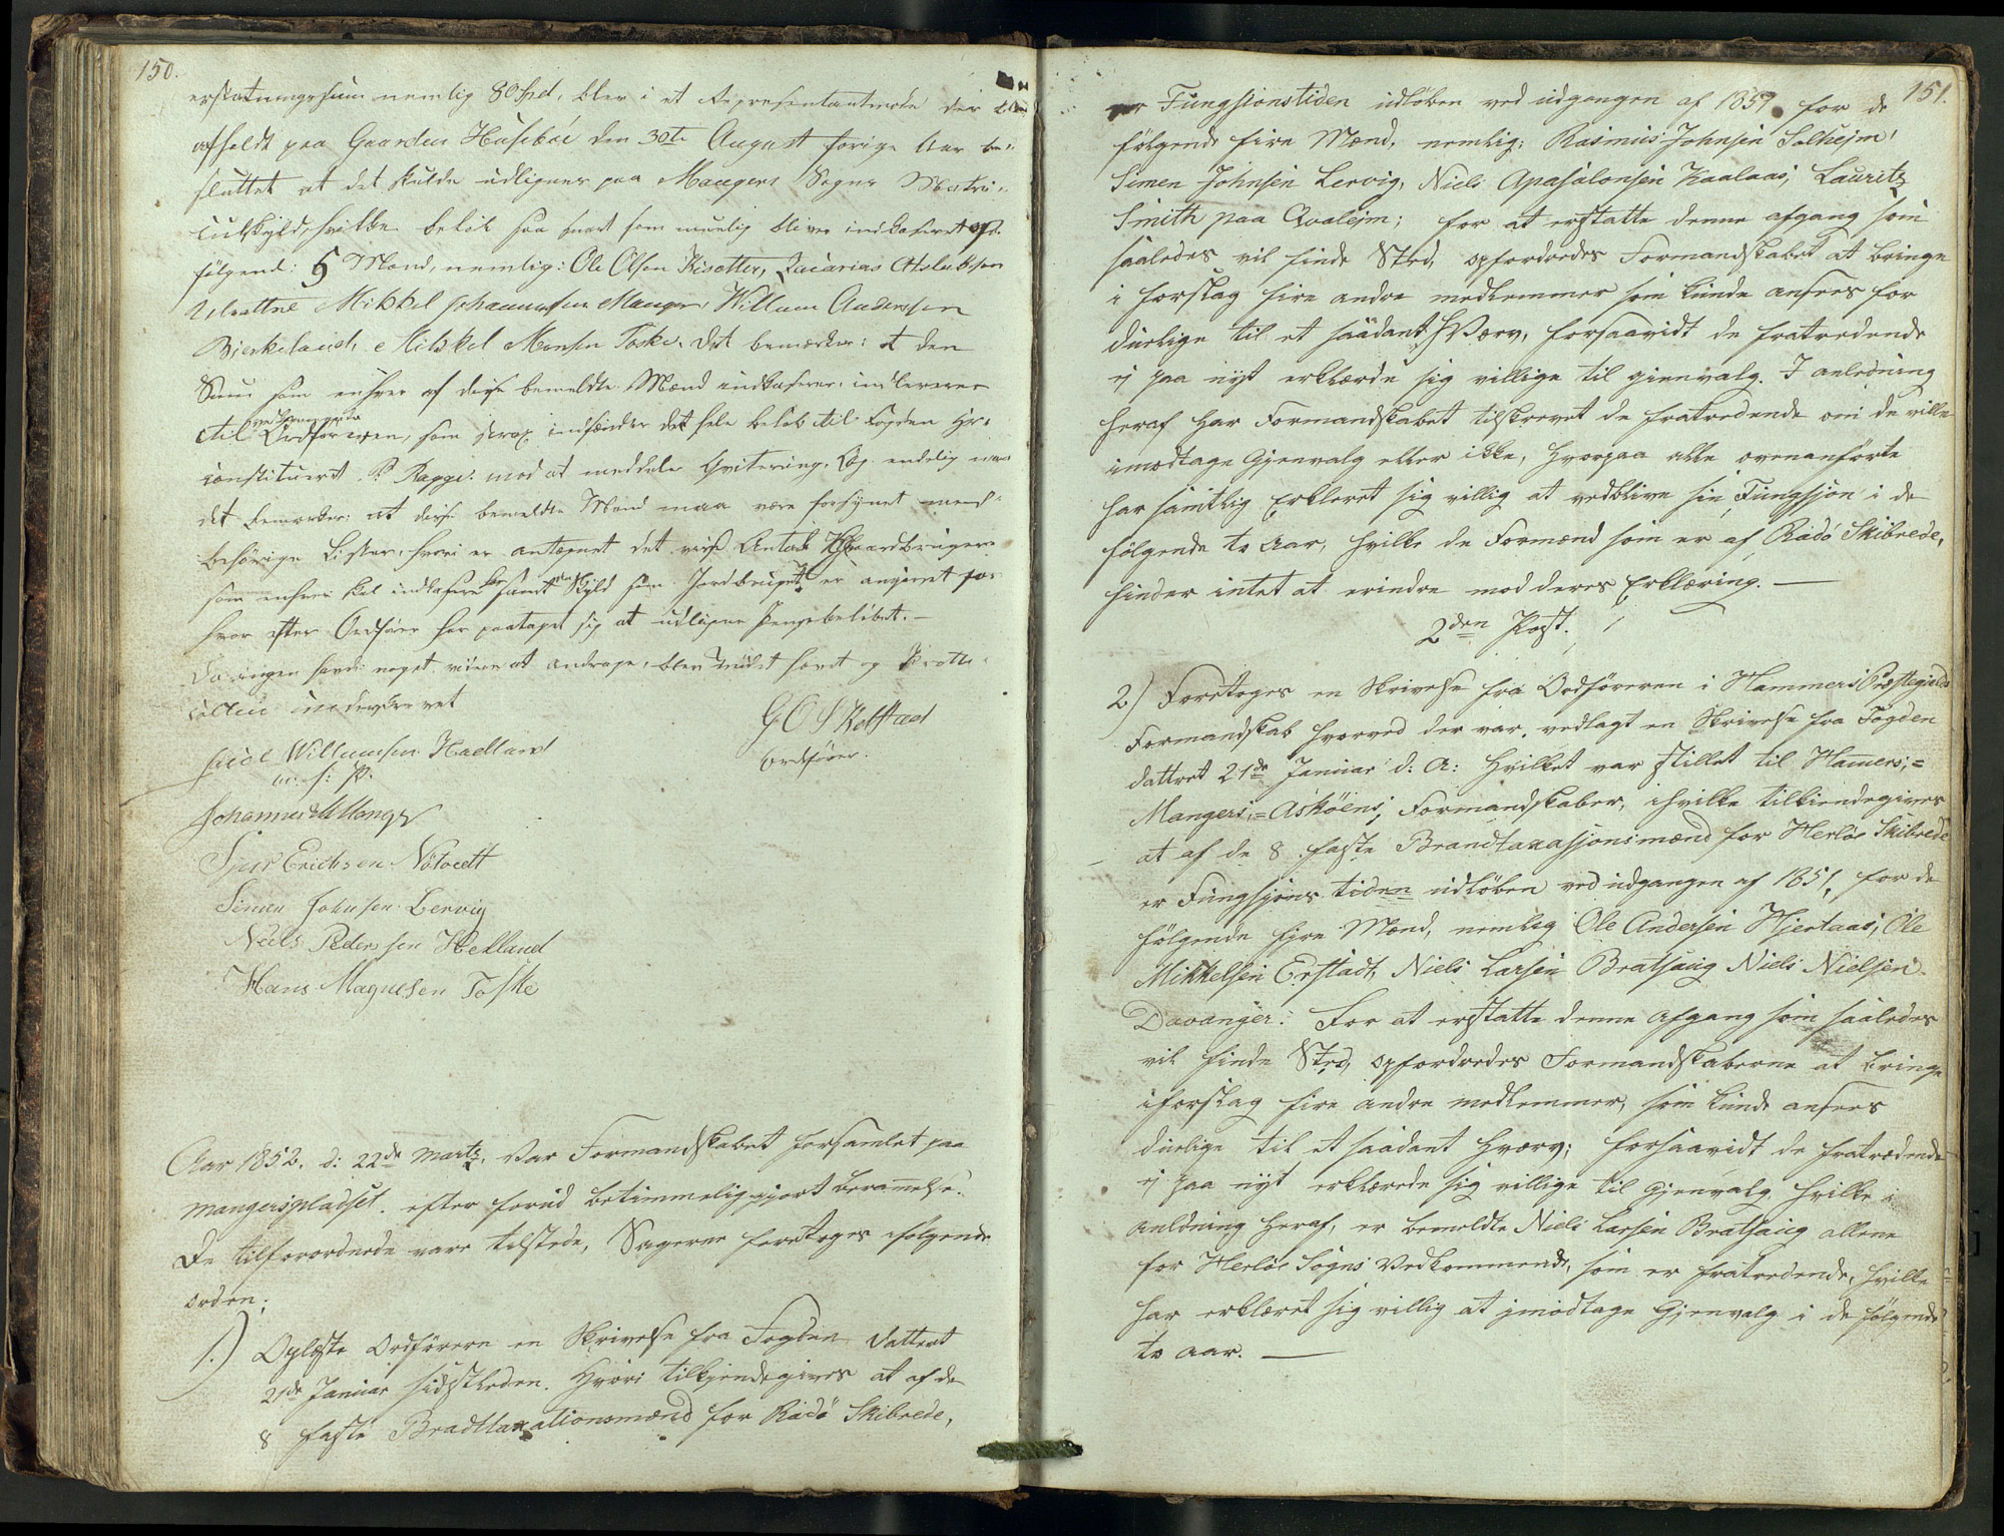 150.
erstatningssum nemlig 80 Spd, blev i et Representantmøde der blev
afholdt paa Gaarden Husebøe den 30te August forige Aar be-
sluttet at det skulde udlignes paa Mangers Sogns Matri-
culskyld, hvilke beløb saa snart som muelig bliver indkaseret af
følgend: 5 Mænd, nemlig: Ole Olsen Risetter, Zacarias Atslaksen
Mikkel Johannesen Manger, Willum Andersen
Bjerkeland, Mikkel Monsen Toske. Det bemærkes: at den
Sum som enhver af disse bemeldte Mænd indkaserer, indleverer
til Ordføreren, som strax indsænder det hele beløb til Fogden Hr.
constitueret P. Kagge. mod at meddele Qvitering. Og endelig maa
det bemærkes: at disse bemeldte Mænd maa være forsynet med
behørige Lister, hvori er antegnet det visse Antal Gaardbrugere
som enhver skal indkasere for samt den Skyld som Jordbruget er ansat for
hvor efter Ordfører har paataget sig at udligne Pengebeløbet. —
Da ingen havde noget videre at andrage, blev Mødet hævet og Protto-
collen underskrevet
G O S Kolstad
Ordfører.
Willumsen Hæland
m. f. P.
Johannes M Mangr
Sjur Erichsen Nötvett
Simen Johnsen Lervig
Niels Pedersen Helland
Hans Magnesen Toske
Aar 1852. d: 22de Martz. var Formandskabet forsamlet paa
Mangerspladset. efter forud betimmelig gjort beramelse.
De tilforordnede vare tilstede, Sagerne foretoges i følgende
orden;
1.) Oplæste Ordføreren en Skrivelse fra Fogden datteret
21de Januar sidstleden. Hvori tilkjendegives at af de
8 faste Bradttaxationsmænd for Radö Skibrede,
151.
er Fungsionstiden udløben ved udgangen af 1851, for de
følgende fire Mænd, nemlig: Rasmus Johnsen Solhejm,
Simen Johnsen Lervig, Niels Apasalonsen Kaalaas, Lauritz
Smith paa Qvalejm; for at erstatte denne afgang som
saaledes vil finde Sted, opfordredes Formandskabet at bringe
i forslag fire andre medlemmer som kunde ansees for
duelige til et saadant Hværv, forsaavidt de fratredende
ej paa nyt erklærde sig villige til gjenvalg. I anledning
heraf har Formandskabet tilskrevet de fratredende om de ville
imodtage Gjenvalg eller ikke, hvorpaa alle ovenanførte
har samtlig Erkleret sig villig at vedblive sin Fungsjon i de
følgende to Aar, hvilke de Formænd som er af Radö Skibrede,
finder intet at erindre mod deres Erklæring. —
2den Post.
2) Foretoges en Skrivelse fra Ordføreren i Hammers Præstegjelds
Formandskab hvorved der var vedlagt en Skrivelse fra Fogden
dattret 21de Januar d: A: hvilket var stillet til Hamers,=
Mangers,= Asköens, Formandskaber, i hvilke tilkiendegives
at af de 8 faste Brandtaxasjonsmænd for Herlöe Skibrede
er Fungsjons tiden udløben ved udgangen af 1851, for de
følgende fire Mænd, nemlig Ole Andersen Hjertaas, Ole
Mikkelsen Erstad, Niels Larsen Bratsaug Niels Nielsen
Davanger: For at erstatte denne Afgang som saaledes
vil finde Sted, opfordredes Formandskaberne at bringe
i forslag fire andre medlemmer, som kunde ansees
duelige til et saadant Hværv; forsaavidt de fratrædende
ej paa nyt erklærede sig villige til Gjenvalg. Hvilke i
anledning heraf, er bemeldte Niels Larsen Bratsaug allene
for Herlöe Sogns vedkommende, som er fratredende, hvilke
har erklæret sig villig at jmodtage Gjenvalg i de følgende
to aar. —